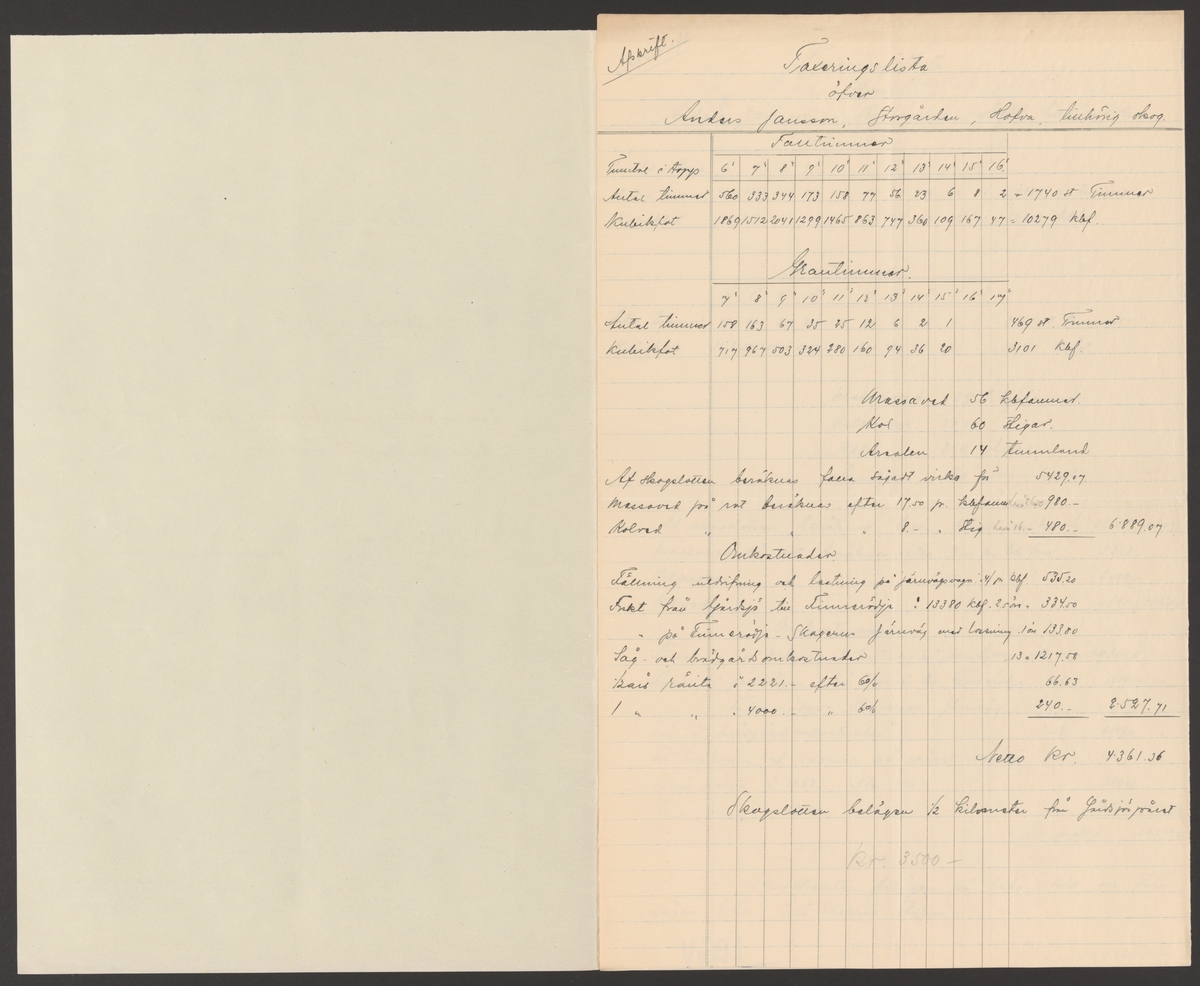 Afskrift.
Taxeringslista
öfver
Anders Jansson, Storgården, Hofva, tillhörig skog.
Talltimmer
Tumtal i topp 6" 7" 8" 9" 10" 11" 12" 13" 14" 15" 16"
Antal timmer 560 333 344 173 158 77 56 23 6 8 2 = 1740 st Timmer
Kubikfot 1869 1512 2041 1299 1465 863 747 360 109 167 47 = 10279 kbf.
Grantimmer.
7" 8" 9" 10" 11" 12" 13" 14" 15" 16" 17"
Antal timmer 158 163 67 35 25 12 6 2 1 469 st. Timmer
Kubikfot 717 967 503 324 280 160 94 36 20 3101 kbf.
Massaved 56 kbfamnar.
Kol 60 stigar.
Arealen 14 tunnland
Af skogslotten beräknas falla sågadt virke för 5429.07
Massaved på rot beräknas efter 17.50 pr. kbfamn 980.-
Kolved " " " 8.- " Stig 480.- 6.889.07
Omkostnader
Fällning utdrifning och lastning på järnvägsvagn 4/ pr kbf 535.20
Frakt från Gårdsjö till Finnerödja : 13380 kbf. 2.5 öre. 334.50
" på Finnerödja - Skagerns Järnväg med lossning 1 öre 133.80
Såg- och brädgårdsomkostnader 13 " 1217.58
1/2 års ränta å 2221.- efter 6% 66.63
1 " " " 4000.- " 6% 240.- 2.527.71
Netto Kr. 4.361.36
Skogslotten belägen 1/2 kilometer från Gårdsjös
Kr. 3500-